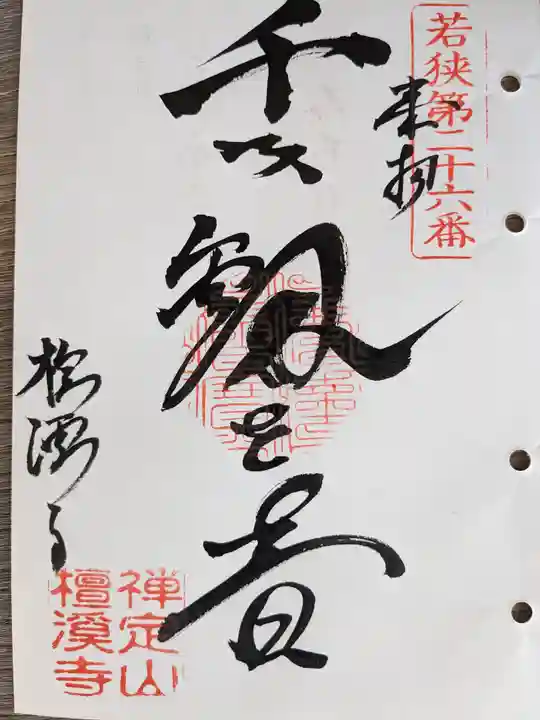 若狭第二十六番
奉拝
千手観世音
檀溪寺
禅定山
檀溪寺